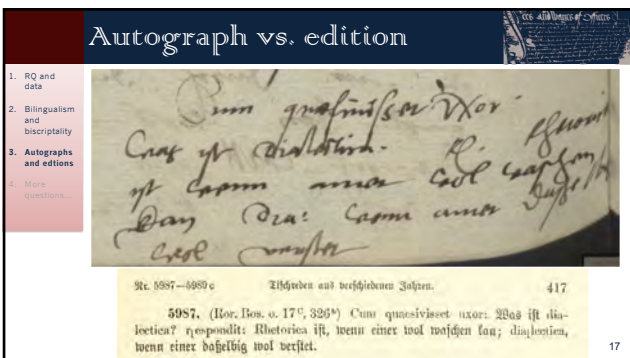 Autograph vs. edition
1. RQ and
data
2. Bilingualism
and
biscriptality
3. Autographs
and edtions
4. More
questions...
Cum quaesivisset Uxor
Was ist Dialectica. R. Rhetorica
ist wenn einer wol waschen
kan Dia: wenn einer dasselb
wol verstet
Nr. 5987—5989 c Tischreden aus verschiedenen Jahren. 417
5987. (Hor. Bos. o. 17ᶜ, 326ᵇ) Cum quaesivisset uxor: Was ist dia-
lectica? respondit: Rhetorica ist, wenn einer wol waschen kan; dialectica,
wenn einer daßelbig wol verstet.
17